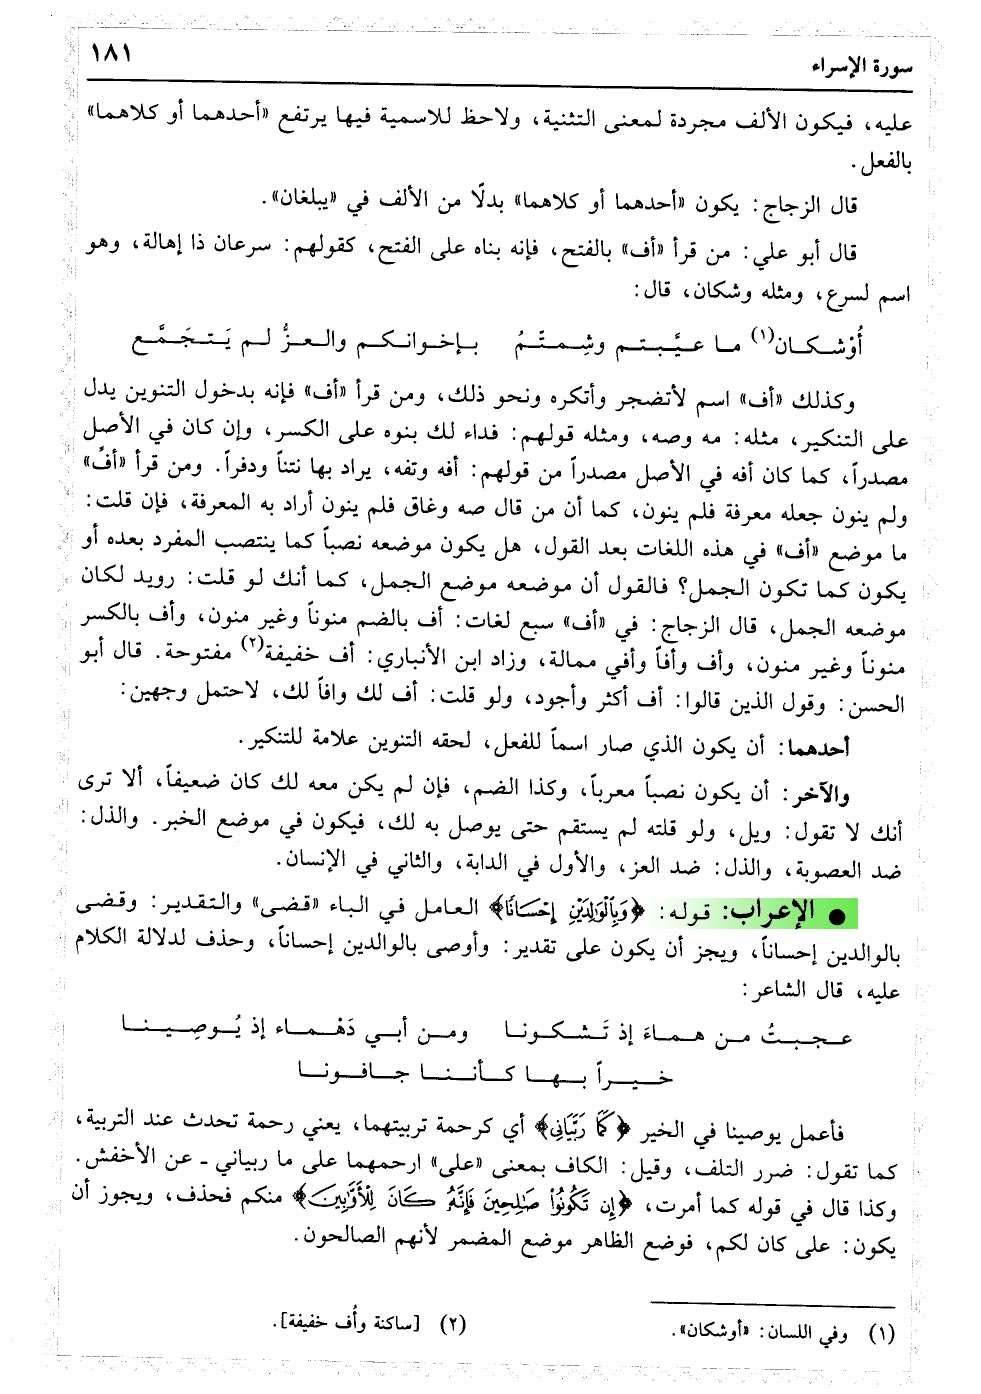 سورة الإسراء ١٨١
عليه، فيكون الألف مجردة لمعنى التثنية، ولاحظ للاسمية فيها يرتفع «أحدهما أو كلاهما»
بالفعل.
قال الزجاج: يكون «أحدهما أو كلاهما» بدلًا من الألف في «يبلغان».
قال أبو علي: من قرأ «أف» بالفتح، فإنه بناه على الفتح، كقولهم: سرعان ذا إهالة، وهو
اسم لسرع، ومثله وشكان، قال:
أُوْشـكـان(١) مـا عـيَّـبـتـم وشِـمـتّـمُ بـإخـوانـكـم والـعـزُّ لـم يَـتـجـمَّـع
وكذلك «أف» اسم لأتضجر وأتكره ونحو ذلك، ومن قرأ «أف» فإنه بدخول التنوين يدل
على التنكير، مثله: مه وصه، ومثله قولهم: فداء لك بنوه على الكسر، وإن كان في الأصل
مصدراً، كما كان أفه في الأصل مصدراً من قولهم: أفه وتفه، يراد بها نتناً ودفراً. ومن قرأ «أفِّ»
ولم ينون جعله معرفة فلم ينون، كما أن من قال صه وغاق فلم ينون أراد به المعرفة، فإن قلت:
ما موضع «أف» في هذه اللغات بعد القول، هل يكون موضعه نصباً كما ينتصب المفرد بعده أو
يكون كما تكون الجمل؟ فالقول أن موضعه موضع الجمل، كما أنك لو قلت: رويد لكان
موضعه الجمل، قال الزجاج: في «أف» سبع لغات: أف بالضم منوناً وغير منون، وأف بالكسر
منوناً وغير منون، وأف وأفاً وأفي ممالة، وزاد ابن الأنباري: أف خفيفة(٢) مفتوحة. قال أبو
الحسن: وقول الذين قالوا: أف أكثر وأجود، ولو قلت: أف لك وافاً لك، لاحتمل وجهين:
أحدهما: أن يكون الذي صار اسماً للفعل، لحقه التنوين علامة للتنكير.
والآخر: أن يكون نصباً معرباً، وكذا الضم، فإن لم يكن معه لك كان ضعيفاً، ألا ترى
أنك لا تقول: ويل، ولو قلته لم يستقم حتى يوصل به لك، فيكون في موضع الخبر. والذل:
ضد العصوبة، والذل: ضد العز، والأول في الدابة، والثاني في الإنسان.
● الإعراب: قوله: ﴿وَبِالْوَالِدَيْنِ إِحْسَانًا﴾ العامل في الباء «قضى» والتقدير: وقضى
بالوالدين إحساناً، ويجز أن يكون على تقدير: وأوصى بالوالدين إحساناً، وحذف لدلالة الكلام
عليه، قال الشاعر:
عـجـبـتُ مـن هـمـاءَ إذ تَـشـكـونـا ومـن أبـي دَهْـمـاء إذ يُـوصِـيـنـا
خـيـراً بـهـا كـأنـنـا جـافـونـا
فأعمل يوصينا في الخير ﴿كَمَا رَبَّيَانِي﴾ أي كرحمة تربيتهما، يعني رحمة تحدث عند التربية،
كما تقول: ضرر التلف، وقيل: الكاف بمعنى «على» ارحمهما على ما ربياني ـ عن الأخفش.
وكذا قال في قوله كما أمرت، ﴿إِن تَكُونُواْ صَٰلِحِينَ فَإِنَّهُ كَانَ لِلْأَوَّٰبِينَ﴾ منكم فحذف، ويجوز أن
يكون: على كان لكم، فوضع الظاهر موضع المضمر لأنهم الصالحون.
(١) وفي اللسان: «أوشكان». (٢) [ساكنة وأف خفيفة].